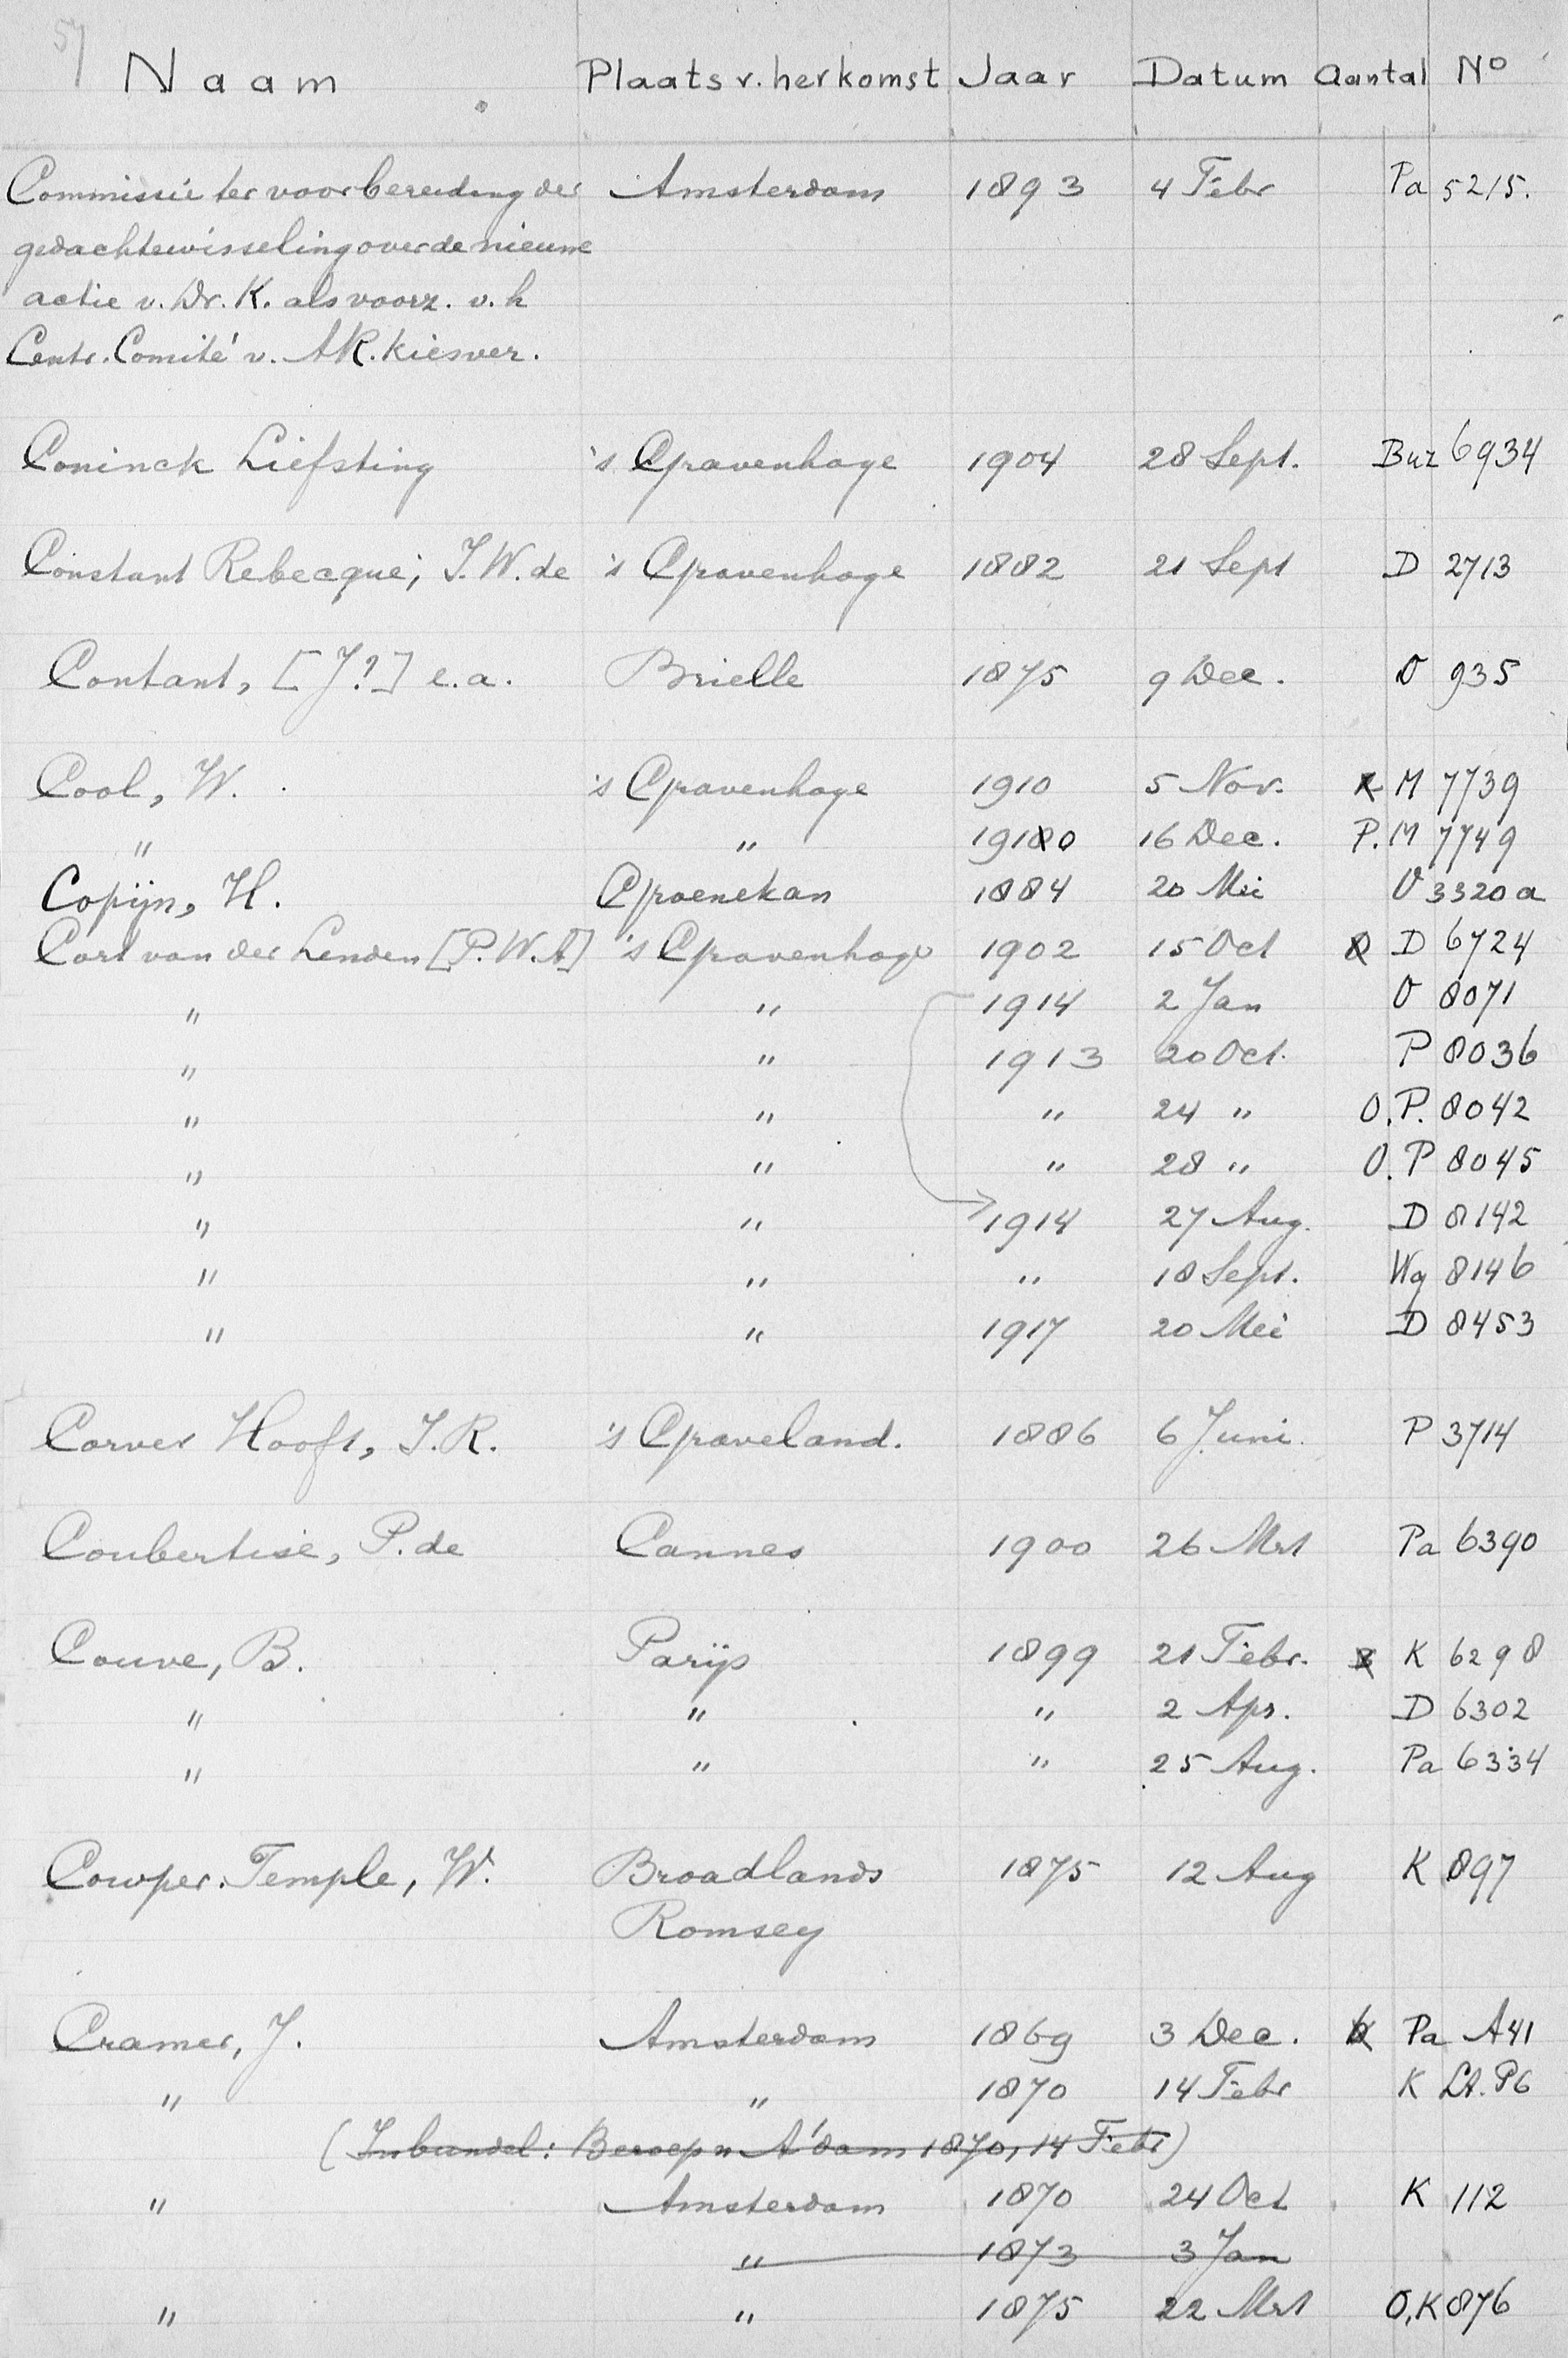 57
Naam Plaats v. herkomst Jaar Datum Aantal No
Commissie ter voorbereiding der Amsterdam 1893 4 Febr Pa 5215.
gedachtewisseling over de nieuwe
actie v. Dr. K. als voorz. v. h
Centr. Comité v. AR. kiesver.
Coninck Liefsting 's Gravenhage 1904 28 Sept. Buz 6934
Constant Rebecque, J.W. de 's Gravenhage 1882 21 Sept D 2713
Contant, [J?] e.a. Brielle 1875 9 Dec. O 935
Cool, W. 's Gravenhage 1910 5 Nov. K M 7739
" " 1910 16 Dec. P. M 7749
Copijn, H. Groenekan 1884 20 Mei O 3320a
Cort van der Linden [P.W.A] 's Gravenhage 1902 15 Oct D 6724
" " 1914 2 Jan O 8071
" " 1913 20 Oct. P 8036
" " " 24 " O.P. 8042
" " " 28 " O.P 8045
" " 1914 27 Aug. D 8142
" " " 18 Sept. Wg 8146
" " 1917 20 Mei D 8453
Corver Hooft, J.R. 's Graveland. 1886 6 Juni P 3714
Coubertise, P. de Cannes 1900 26 Mrt Pa 6390
Couve, B. Parijs 1899 21 Febr. K 6298
" " " 2 Apr. D 6302
" " " 25 Aug. Pa 6334
Cowper. Temple, W. Broadlands 1875 12 Aug K 897
Romsey
Cramer, J. Amsterdam 1869 3 Dec. Pa A41
" " 1870 14 Febr K Lt. P6
(In bundel: Beroep n A'dam 1870, 14 Febr)
" Amsterdam 1870 24 Oct K 112
" 1873 3 Jan
" " 1875 22 Mrt O,K 876